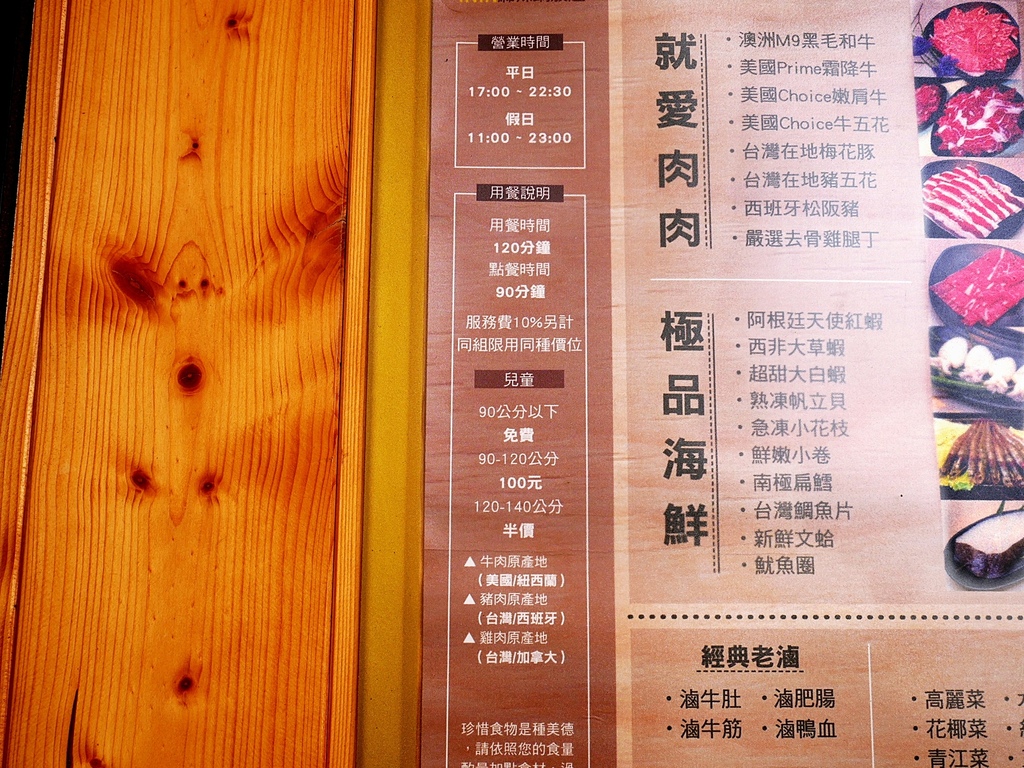 營業時間
平日
17:00 ~ 22:30
假日
11:00 ~ 23:00
用餐說明
用餐時間
120分鐘
點餐時間
90分鐘
服務費10%另計
同組限用同種價位
兒童
90公分以下
免費
90-120公分
100元
120-140公分
半價
▲ 牛肉原產地
（美國/紐西蘭）
▲ 豬肉原產地
（台灣/西班牙）
▲ 雞肉原產地
（台灣/加拿大）
珍惜食物是種美德
，請依照您的食量
就愛肉肉
・澳洲M9黑毛和牛
・美國Prime霜降牛
・美國Choice嫩肩牛
・美國Choice牛五花
・台灣在地梅花豚
・台灣在地豬五花
・西班牙松阪豬
・嚴選去骨雞腿丁
極品海鮮
・阿根廷天使紅蝦
・西非大草蝦
・超甜大白蝦
・熟凍帆立貝
・急凍小花枝
・鮮嫩小卷
・南極扁鱈
・台灣鯛魚片
・新鮮文蛤
・魷魚圈
經典老滷
・滷牛肚 ・滷肥腸
・滷牛筋 ・滷鴨血
・高麗菜
・花椰菜
・青江菜